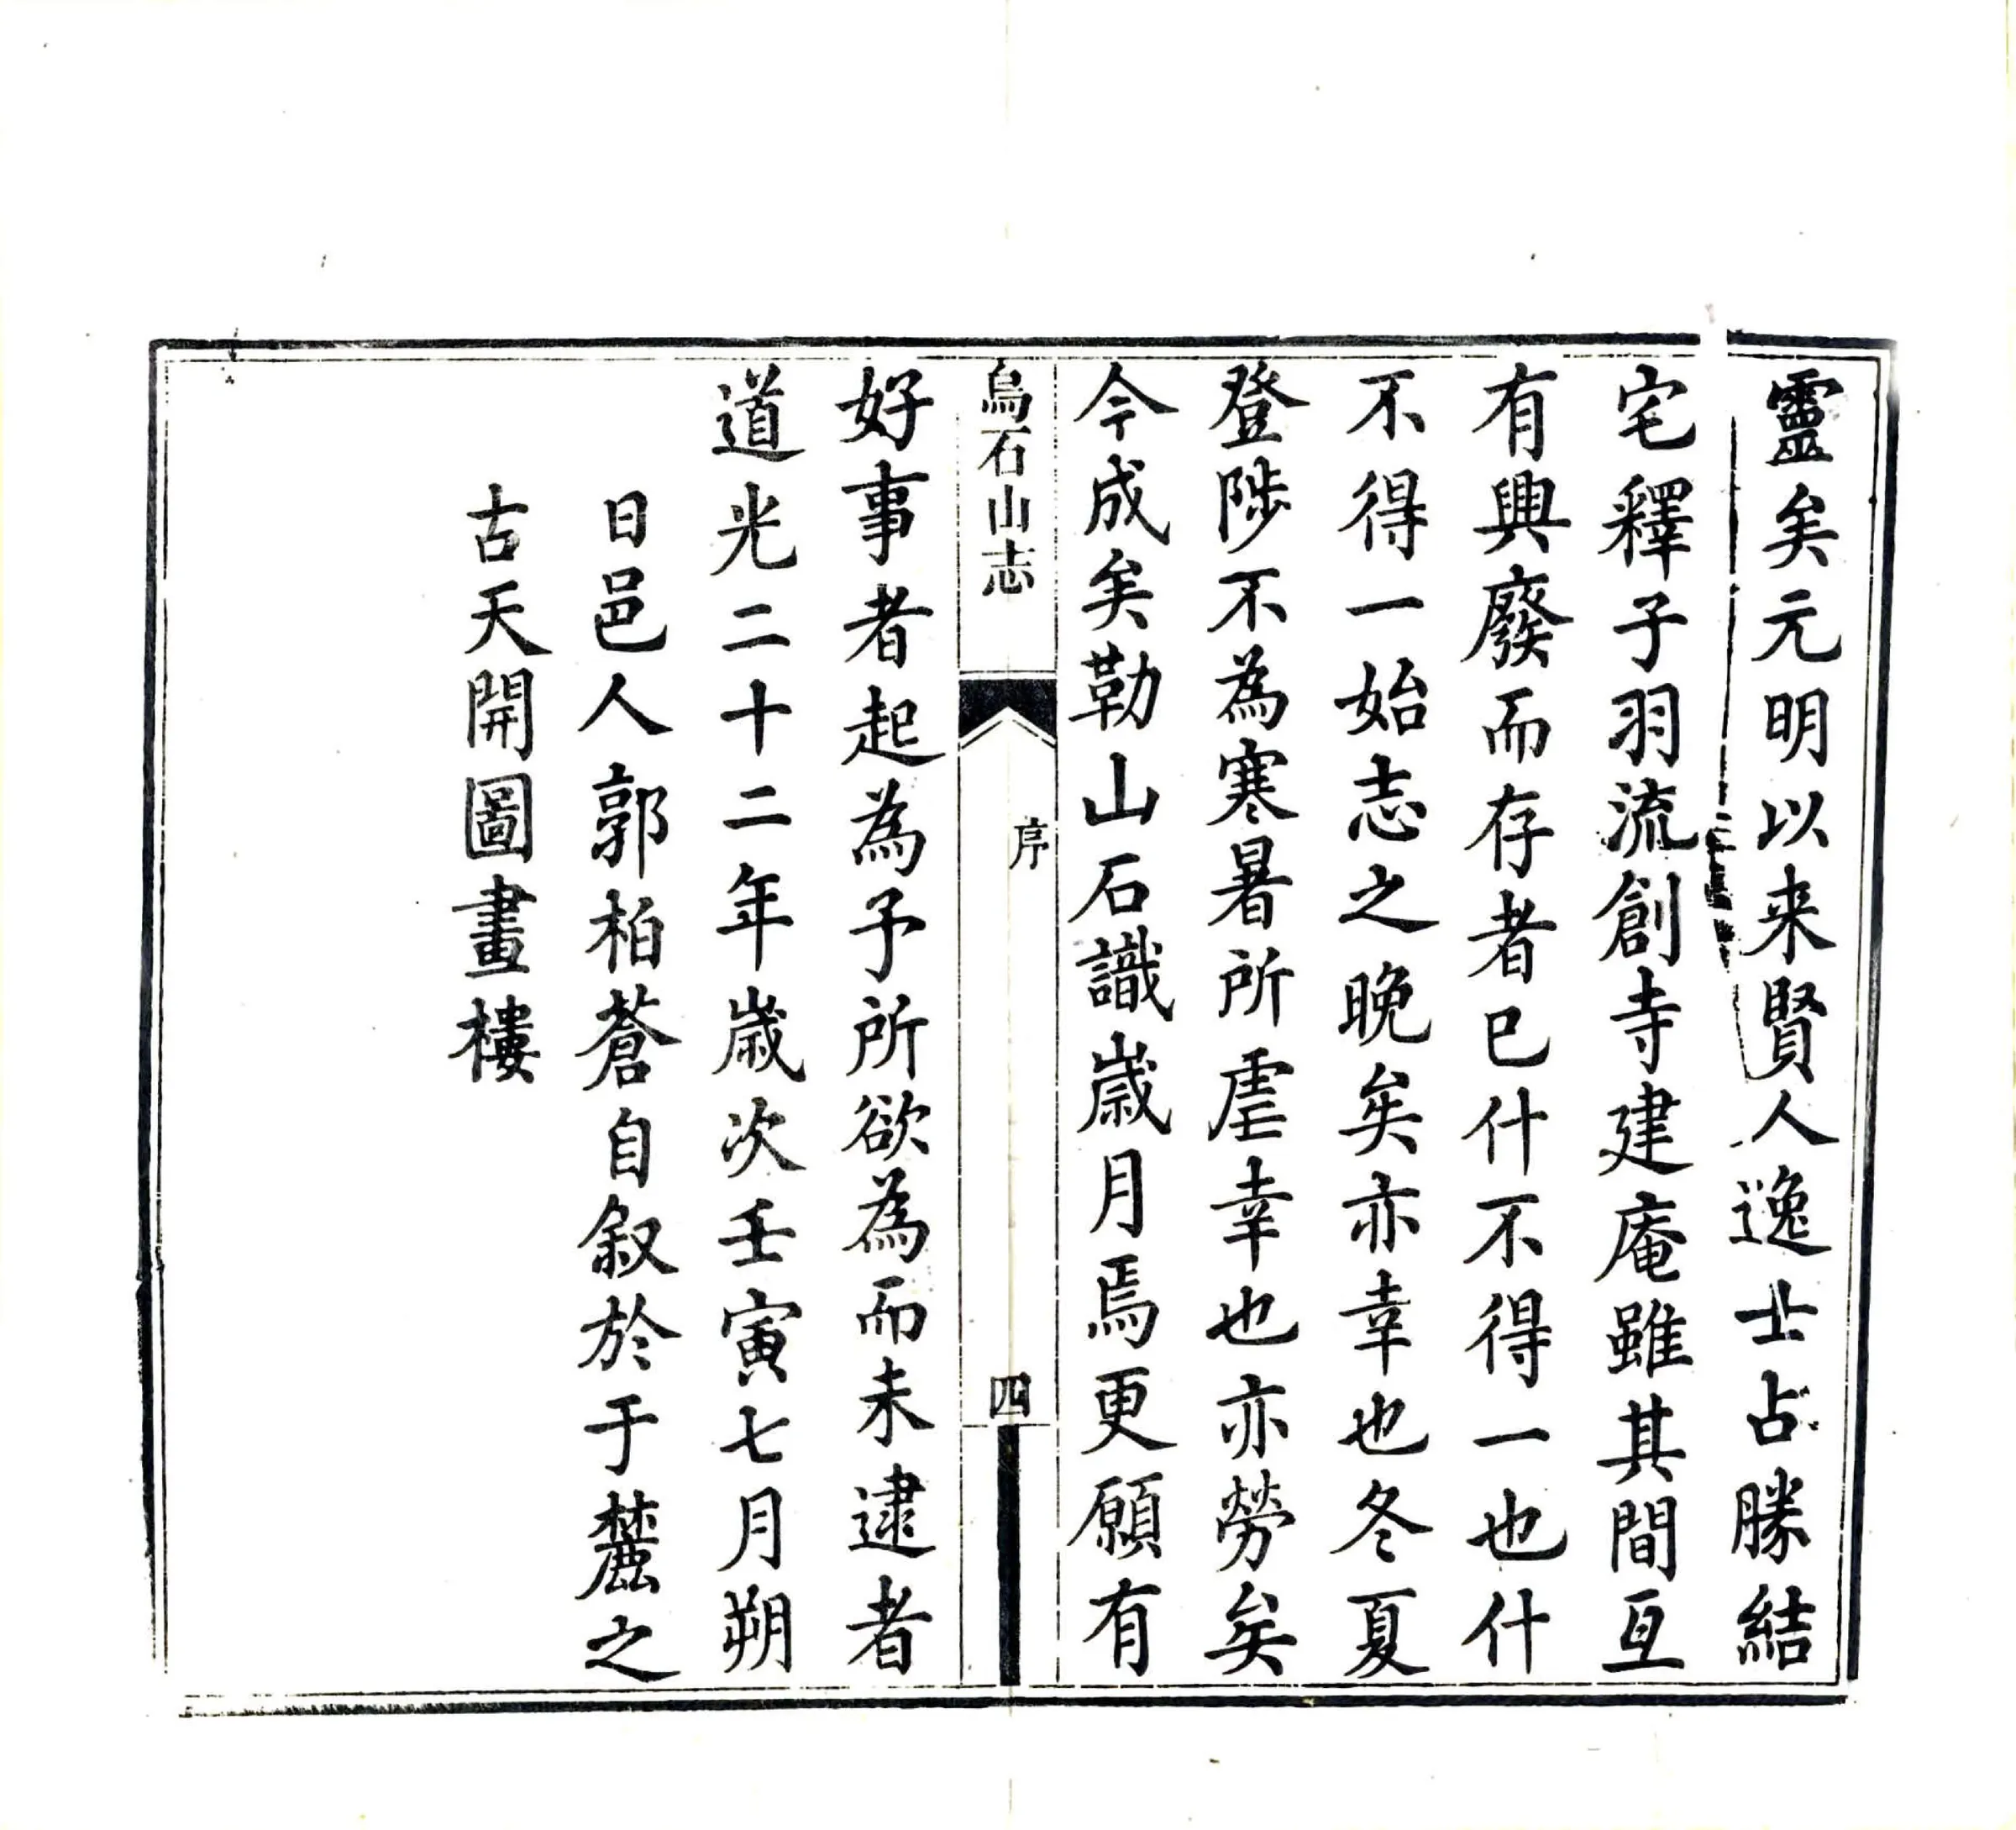 靈矣元明以来賢人逸士占勝結
宅釋子羽流創寺建庵雖其間互
有興廢而存者已什不得一也什
不得一始志之晚矣亦幸也冬夏
登陟不為寒暑所虐幸也亦勞矣
今成矣勒山石識歲月焉更願有
烏石山志
序
四
好事者起為予所欲為而未逮者
道光二十二年歲次壬寅七月朔
日邑人郭柏蒼自叙於于麓之
古天開圖畫樓